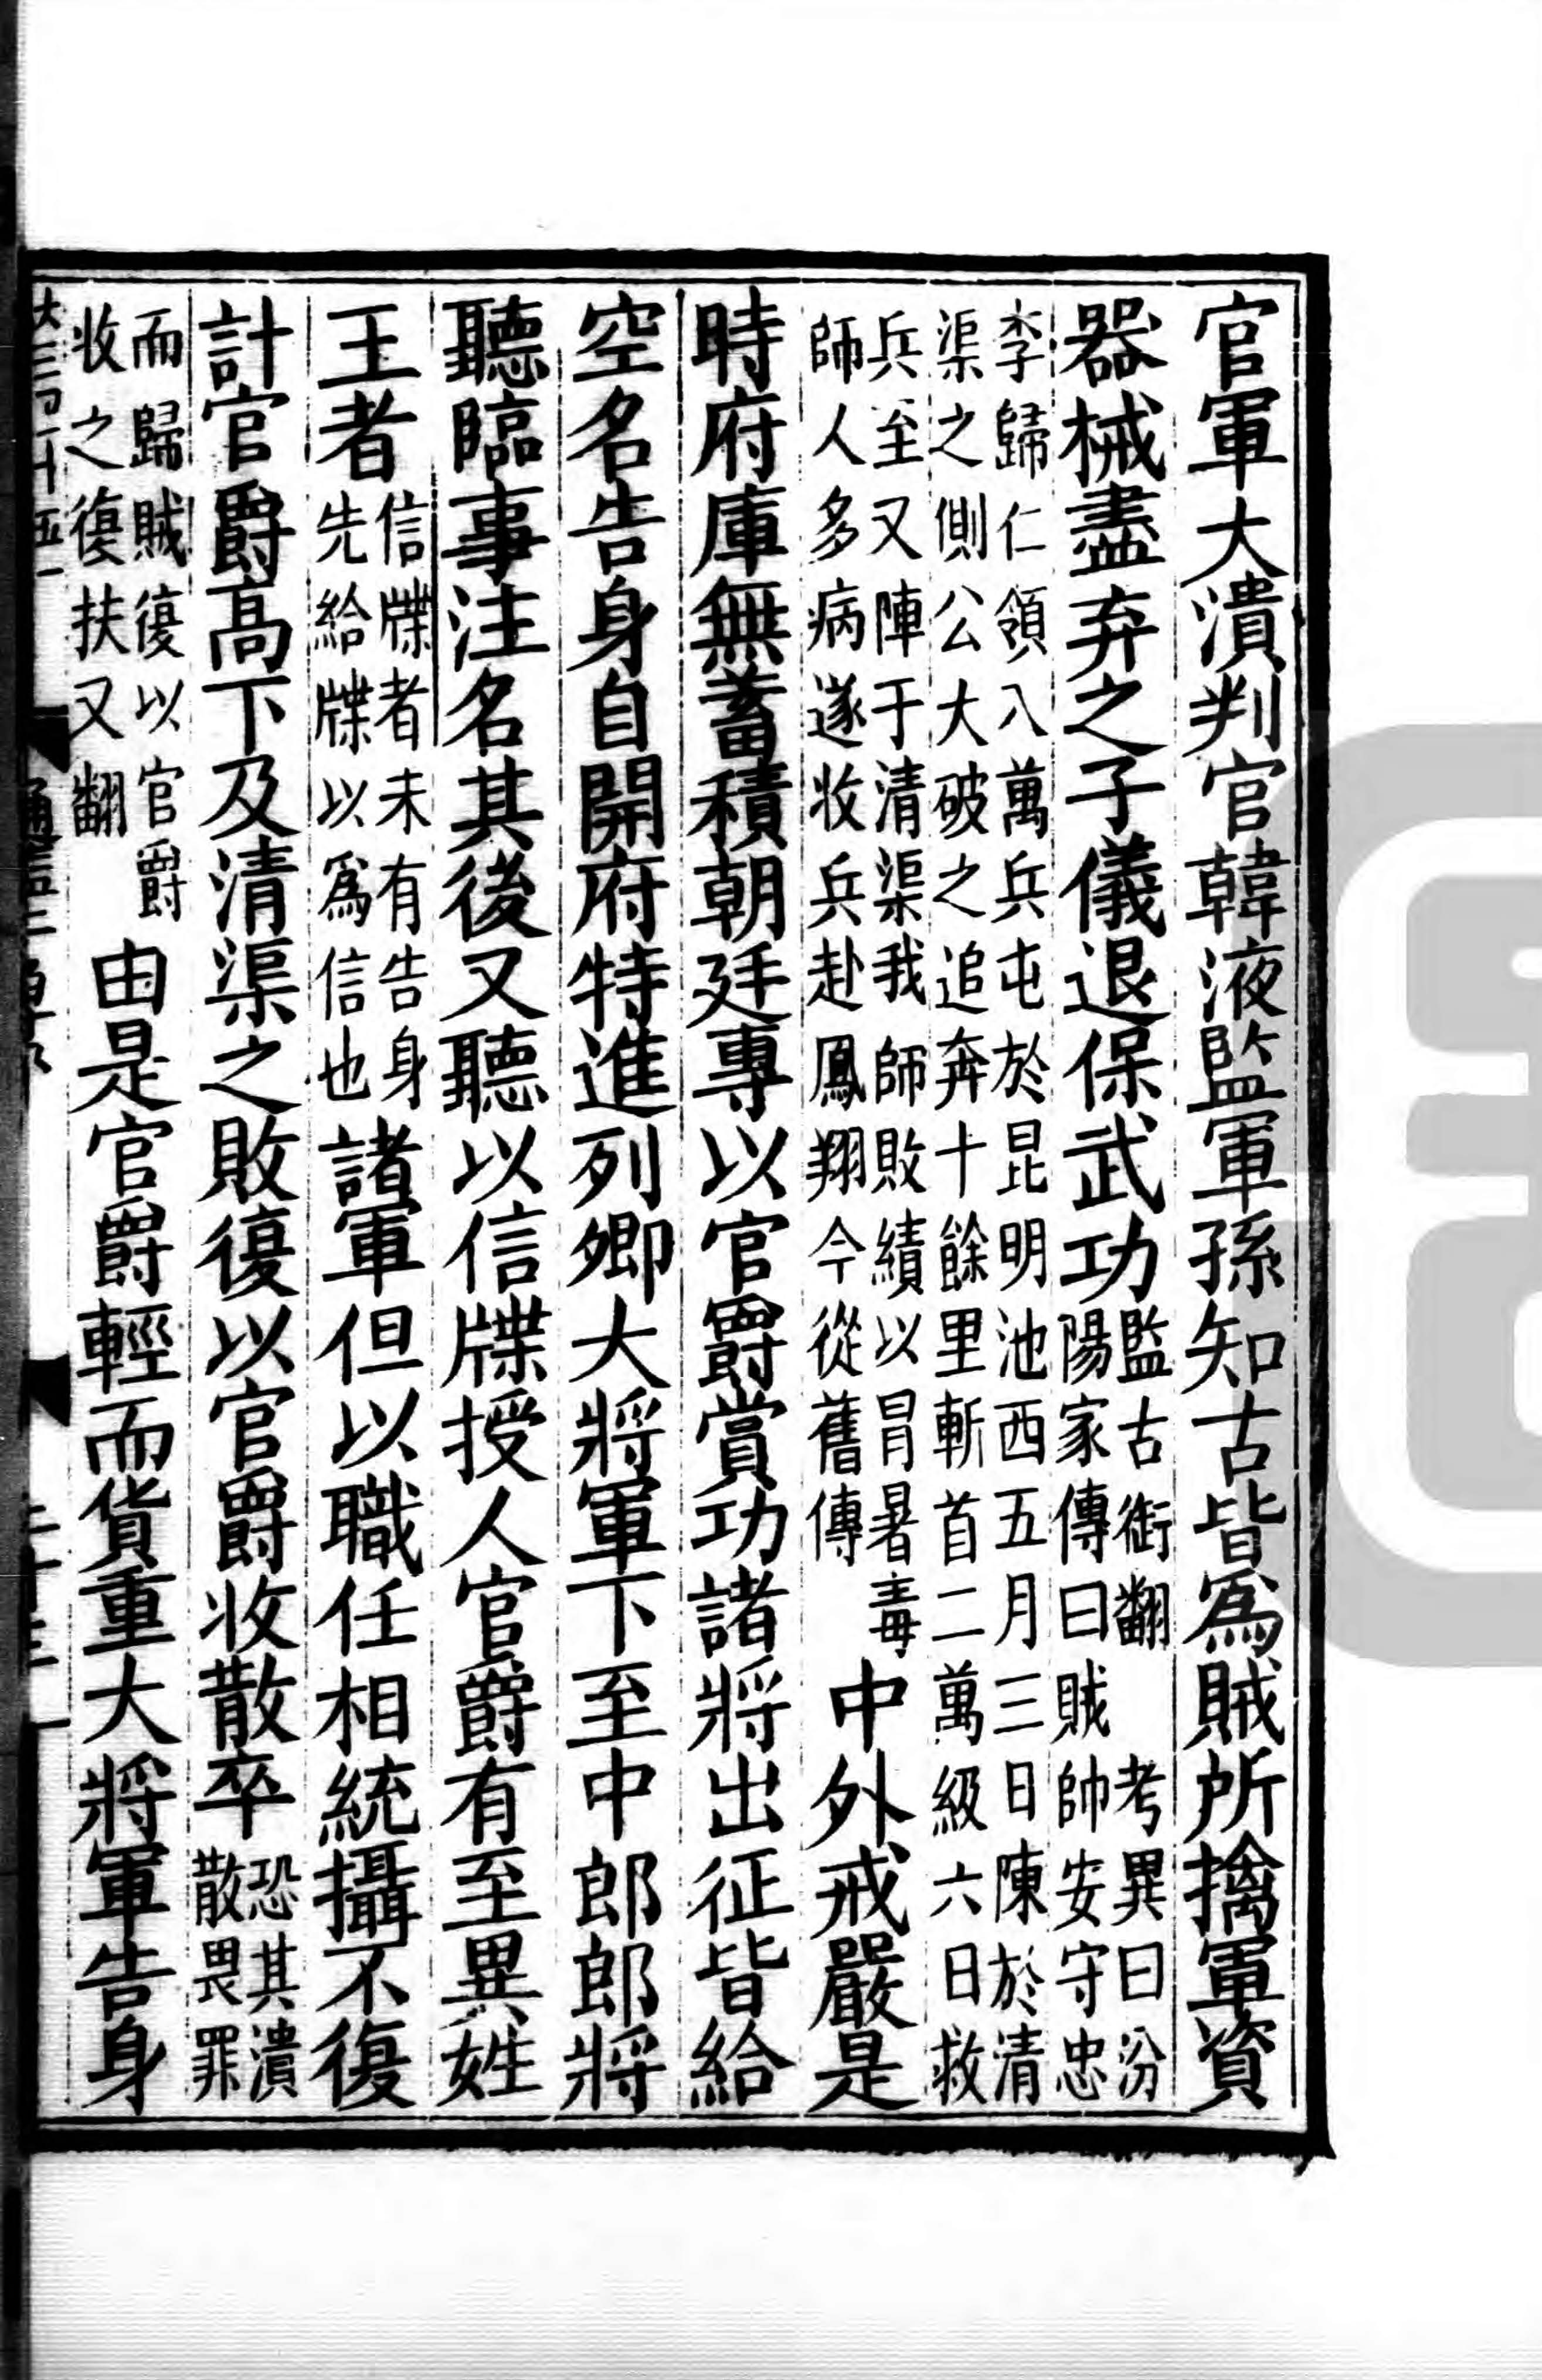 官軍大潰判官韓液監軍孫知古皆爲賊所擒軍資
器械盡弃之子儀退保武功監古銜翻考異曰汾陽家傳曰賊帥安守忠
李歸仁領八萬兵屯於昆明池西五月三日陳於清渠之側公大破之追奔十餘里斬首二萬級六日救
兵至又陣于清渠我師敗績以冐暑毒師人多病遂收兵赴鳳翔今從舊傳中外戒嚴是
時府庫無蓄積朝廷專以官爵賞功諸將出征皆給
空名告身自開府特進列卿大將軍下至中郎郎將
聽臨事注名其後又聽以信牒授人官爵有至異姓
王者信牒者未有告身先給牒以爲信也諸軍但以職任相統攝不復
計官爵高下及清渠之敗復以官爵收散卒恐其潰散畏罪
而歸賊復以官爵收之復扶又翻由是官爵輕而貨重大將軍告身